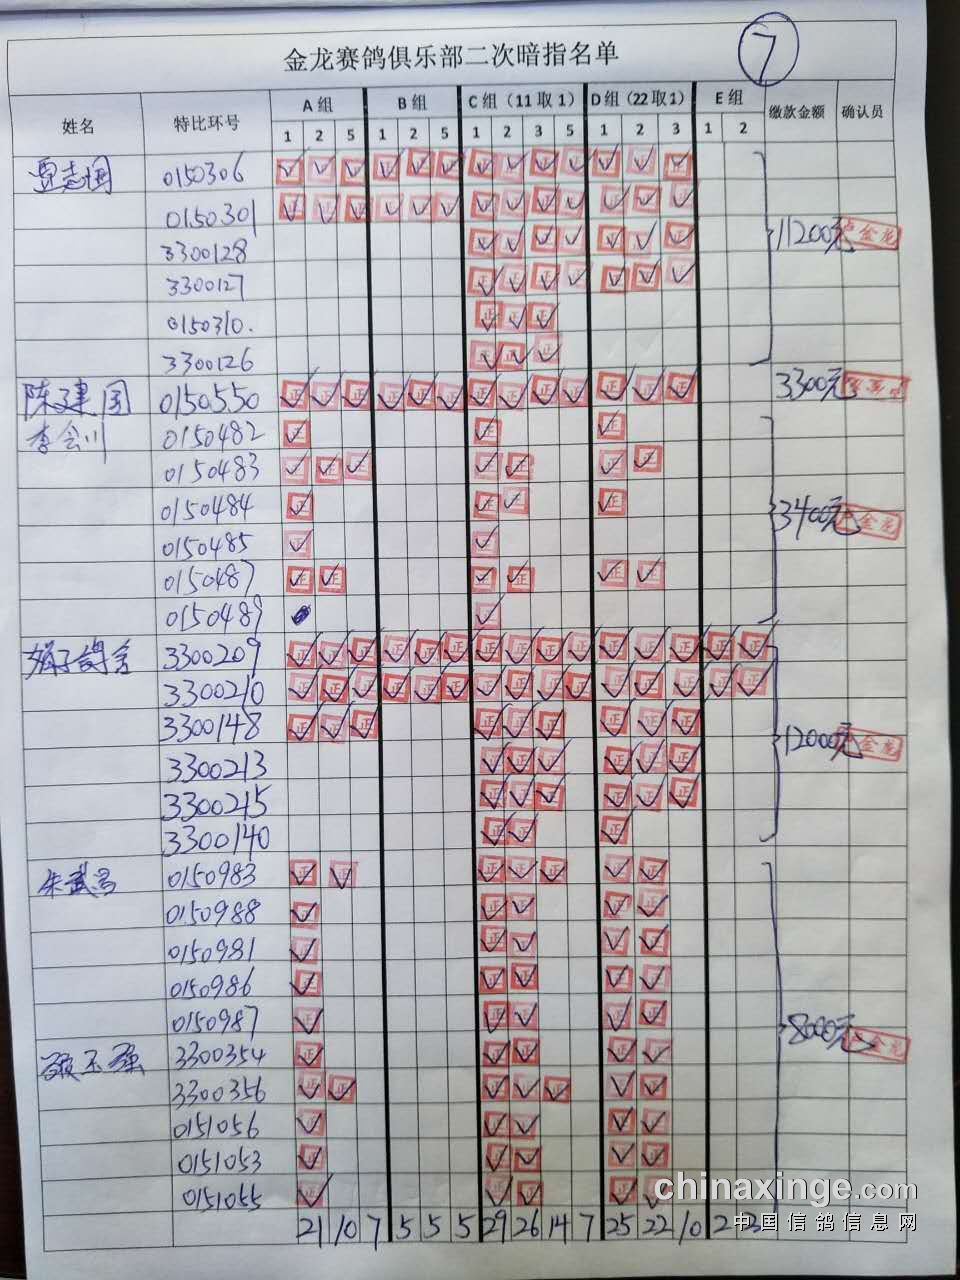 7
金龙赛鸽俱乐部二次暗指名单
姓名 特比环号 A 组 B 组 C 组（11 取 1） D 组（22 取 1） E 组 缴款金额 确认员
1 2 5 1 2 5 1 2 3 5 1 2 3 1 2
贾志国 0150306
0150301
3300128 11200元
3300127
0150310.
3300126
陈建国 0150550 3300元
李会川 0150482
0150483
0150484 3400元
0150485
0150487
0150489
3300209
3300210
3300148 12000元
3300213
3300215
3300140
朱武 0150983
0150988
0150981
0150986
0150987 8000元
玉强 3300354
3300356
0151056
0151053
0151055
21 10 7 5 5 5 29 26 14 7 25 22 10 2
chinaxinge.com
中国信鸽信息网